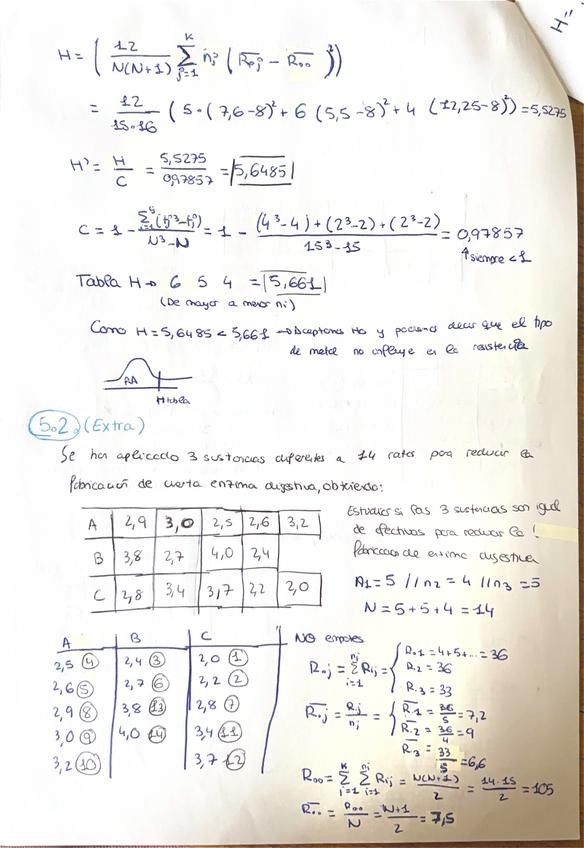 H''
H = ( 12 / N(N+1) Σ_{j=1}^{K} nj ( R̄.j - R̄.. )² ))
= 12 / 15·16 ( 5·(7,6-8)² + 6 (5,5-8)² + 4 (12,25-8)² ) = 5,5275
H' = H / C = 5,5275 / 0,97857 = |5,6485|
C = 1 - Σ(tj³-tj) / N³-N = 1 - (4³-4) + (2³-2) + (2³-2) / 15³-15 = 0,97857
↑siempre <1
Tabla H → 6 5 4 = |5,661|
(De mayor a menor ni)
Como H = 5,6485 < 5,661 → Aceptamos H0 y podemos decir que el tipo
de metal no influye en la resistencia
RA
H tabla
5.2. (Extra)
Se han aplicado 3 sustancias diferentes a 14 ratas para reducir la
fabricación de cierta enzima digestiva, obteniendo:
A 2,9 3,0 2,5 2,6 3,2
B 3,8 2,7 4,0 2,4
C 2,8 3,4 3,7 2,2 2,0
Estudiar si las 3 sustancias son igual
de efectivas para reducir la
fabricación de enzima digestiva
n1 = 5 // n2 = 4 // n3 = 5
N = 5+5+4 = 14
A B C
2,5 (4) 2,4 (3) 2,0 (1)
2,6 (5) 2,7 (6) 2,2 (2)
2,9 (8) 3,8 (13) 2,8 (7)
3,0 (9) 4,0 (14) 3,4 (11)
3,2 (10) 3,7 (12)
NO empates
R.j = Σ_{i=1}^{nj} Rij = { R.1 = 4+5+... = 36
R.2 = 36
R.3 = 33
R̄.j = R.j / nj = { R̄.1 = 36/5 = 7,2
R̄.2 = 36/4 = 9
R̄.3 = 33/5 = 6,6
R.. = Σ_{j=1}^{K} Σ_{i=1}^{nj} Rij = N(N+1) / 2 = 14·15 / 2 = 105
R̄.. = R.. / N = N+1 / 2 = 7,5